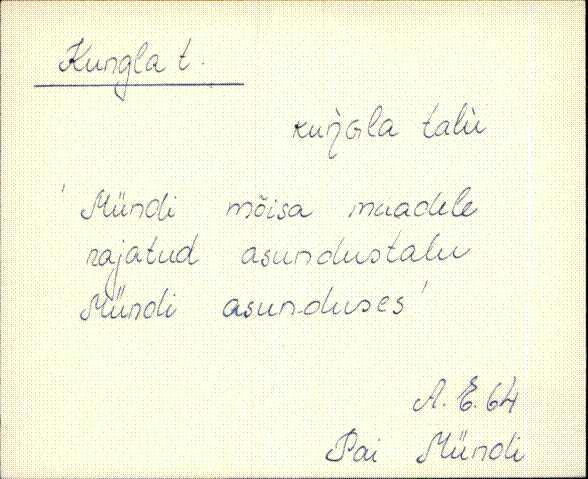 Kungla t.
kuŋ̀Gla talu̇
'Mündi mõisa maadele
rajatud asundustalu
Mündi asunduses'
A. E. 64
Pai Mündi